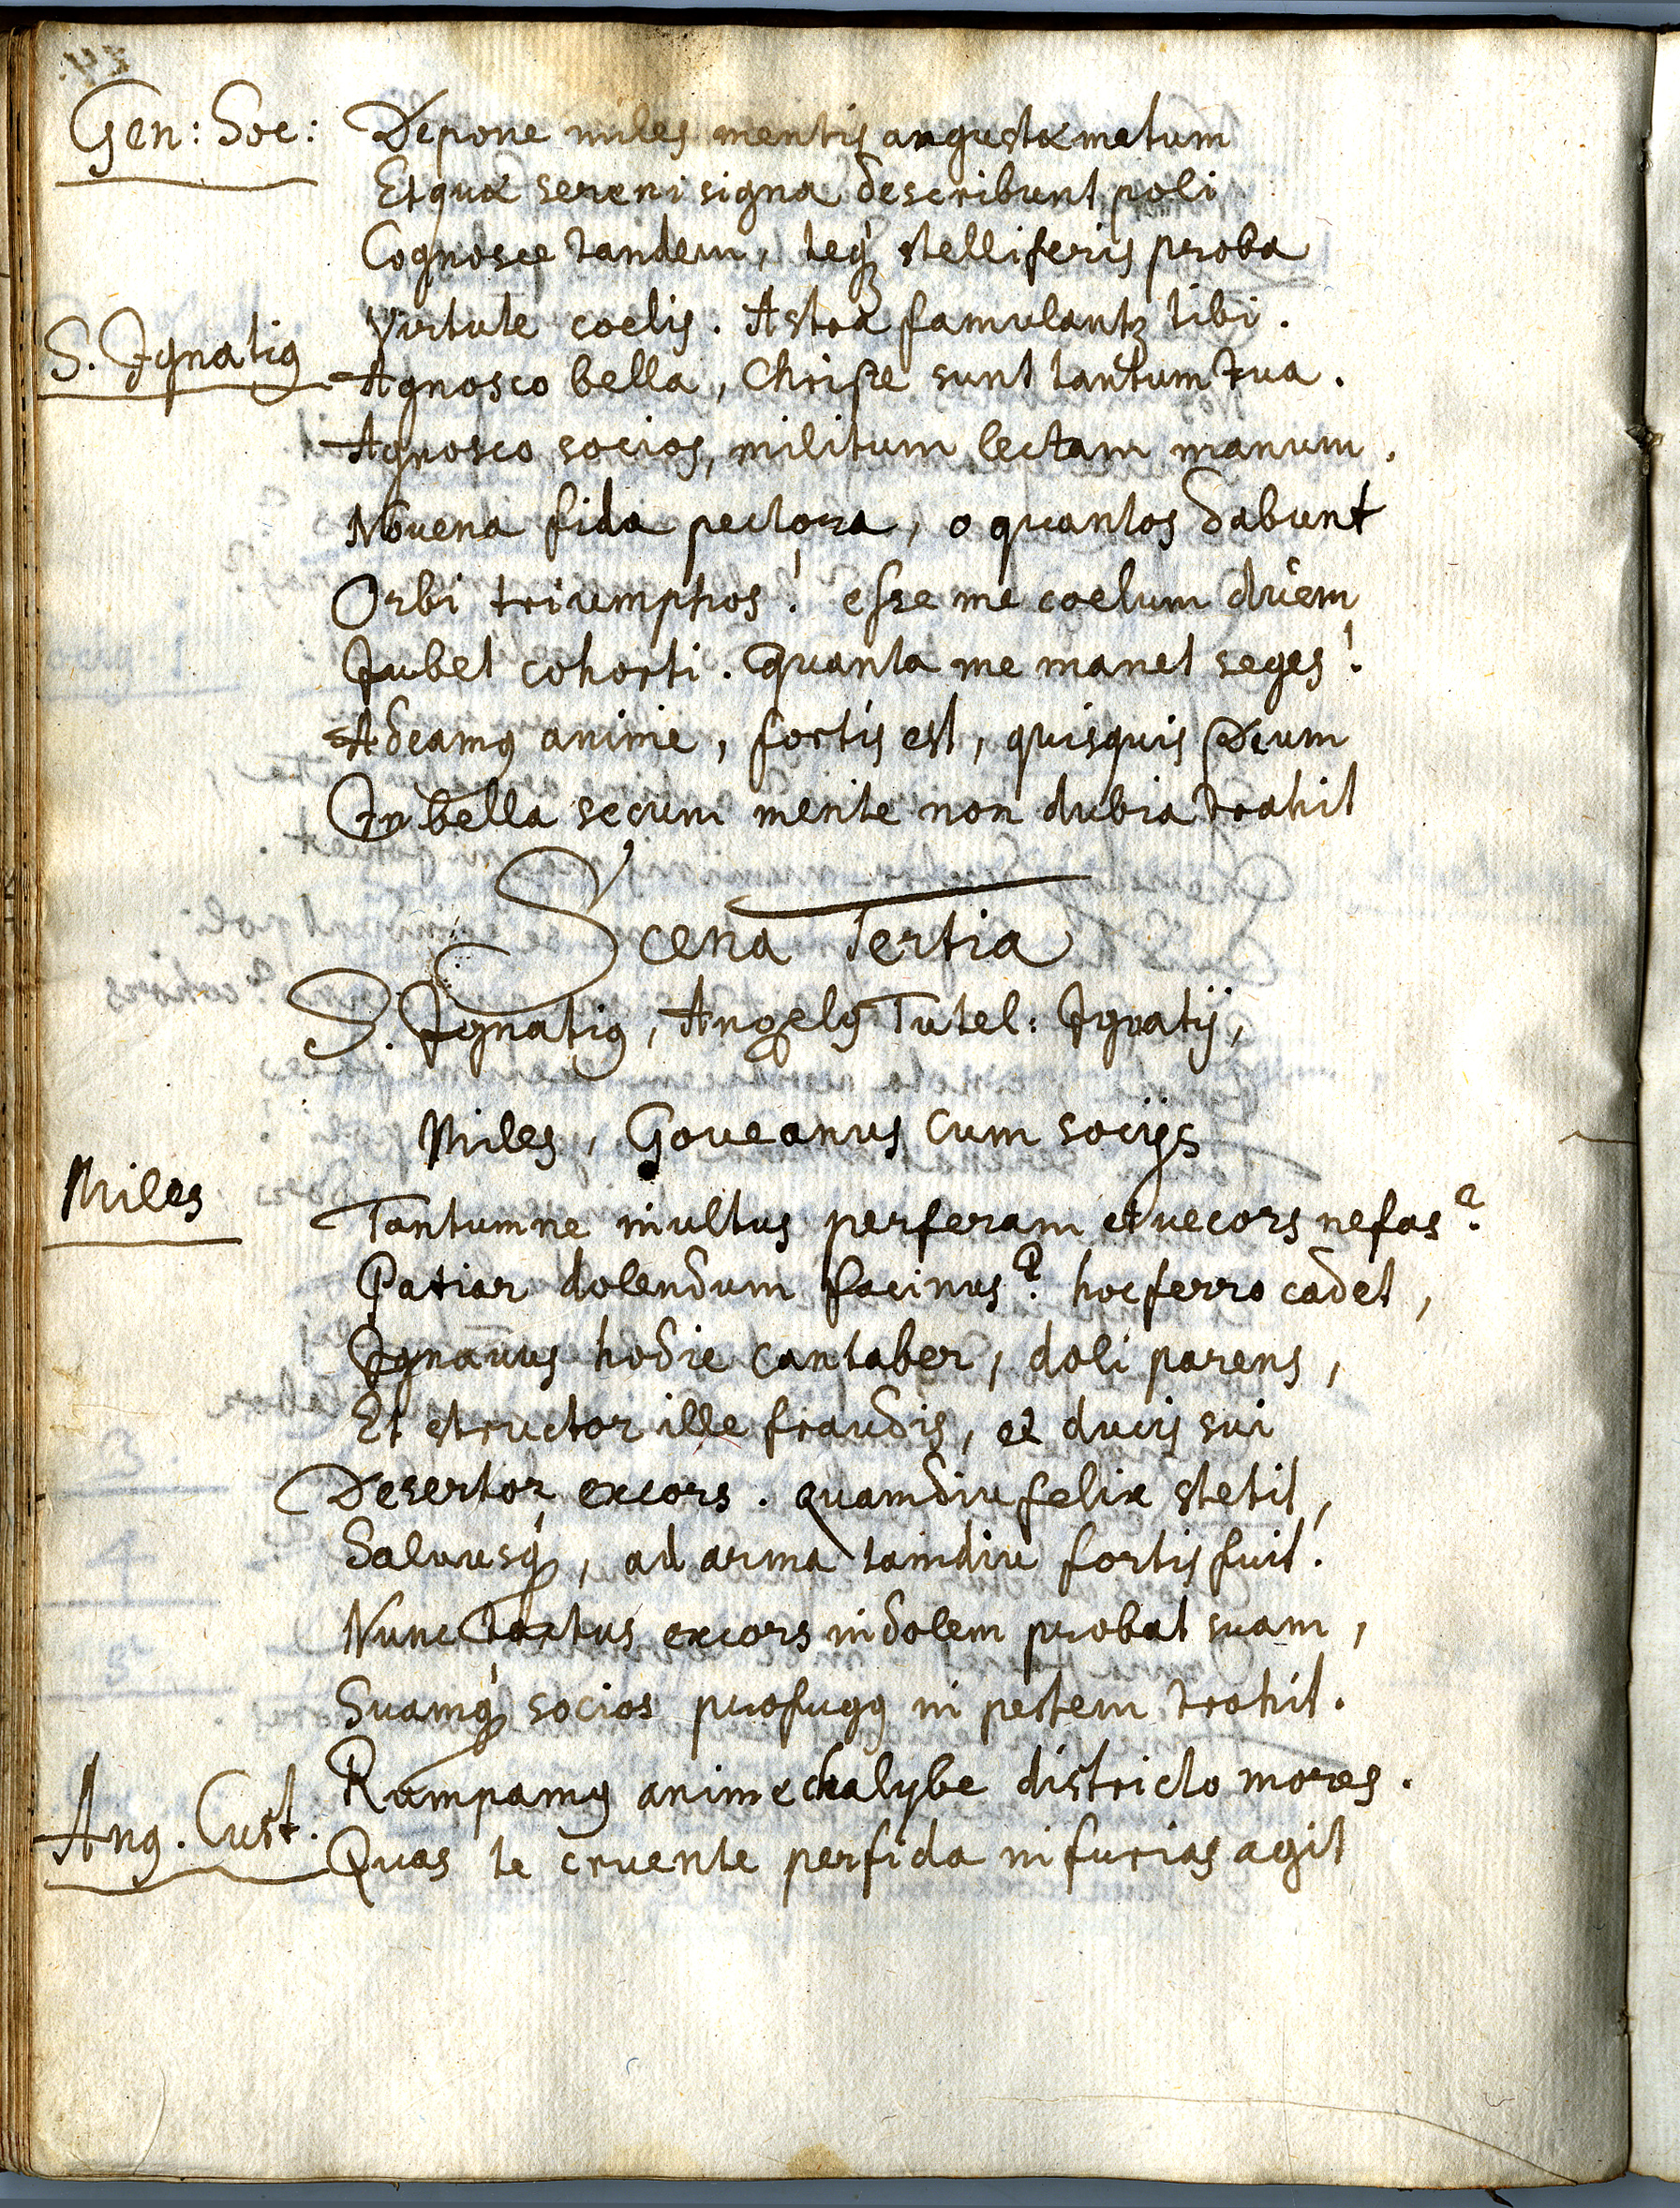 Gen: Soc: Depone miles mentis angustæ metum
Et quæ sereni signa describunt poli
Cognosce tandem, teq; stelliferis proba
Virtute coelis. Astra famulantꝫ tibi.
S. Ignatiꝰ Agnosco bella, Christe sunt tantum tua.
Agnosco socios, militum lectam manum.
Novena fida pectora, o quantos dabunt
Orbi triumphos! esse me coelum ducem
Iubet cohorti. Quanta me manet seges!
Adeamꝰ anime, fortis est, quisquis Deum
In bella secum mente non dubia trahit
Scena Tertia
S. Ignatiꝰ, Angelꝰ Tutel: Ignatij,
Miles, Goueanus cum socijs
Miles Tantumne inultus perferam et vecors nefas?
Patiar dolendum facinus? hoc ferro cadet,
Ignavus hodie Cantaber, doli parens,
Et structor ille fraudis, et ducis sui
Desertor excors. quamdiu felix stetit,
Saluusq;, ad arma tamdiu fortis fuit.
Nunc excors indolem probat suam,
Suamq; socios profugꝰ in pestem trahit.
Rumpamꝰ anime chalybe districto mores.
Ang. Cust. Quas te cruente perfida in furias agit